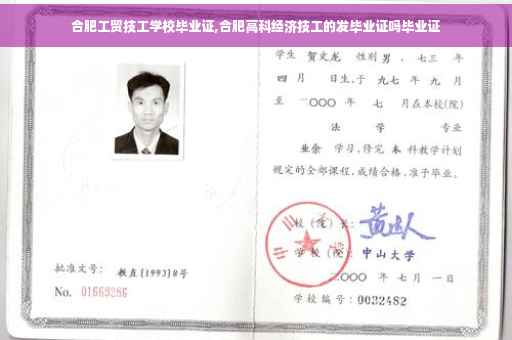 合肥工贸技工学校毕业证,合肥高科经济技工的发毕业证吗毕业证
学生 贺文龙 性别 男 、七三 年
四 月 日生,于 九七 年 九 月
至 二〇〇〇 年 七 月在本校(院)
法 学 专业
业余 学习,修完 本 科教学计划
规定的全部课程,成绩合格,准予毕业。
校(院)长:
学 校(院): 中山大学
二〇〇〇 年 七 月 一 日
学校编号: 0032482
批准文号: 教直[1993]8号
No. 01663286